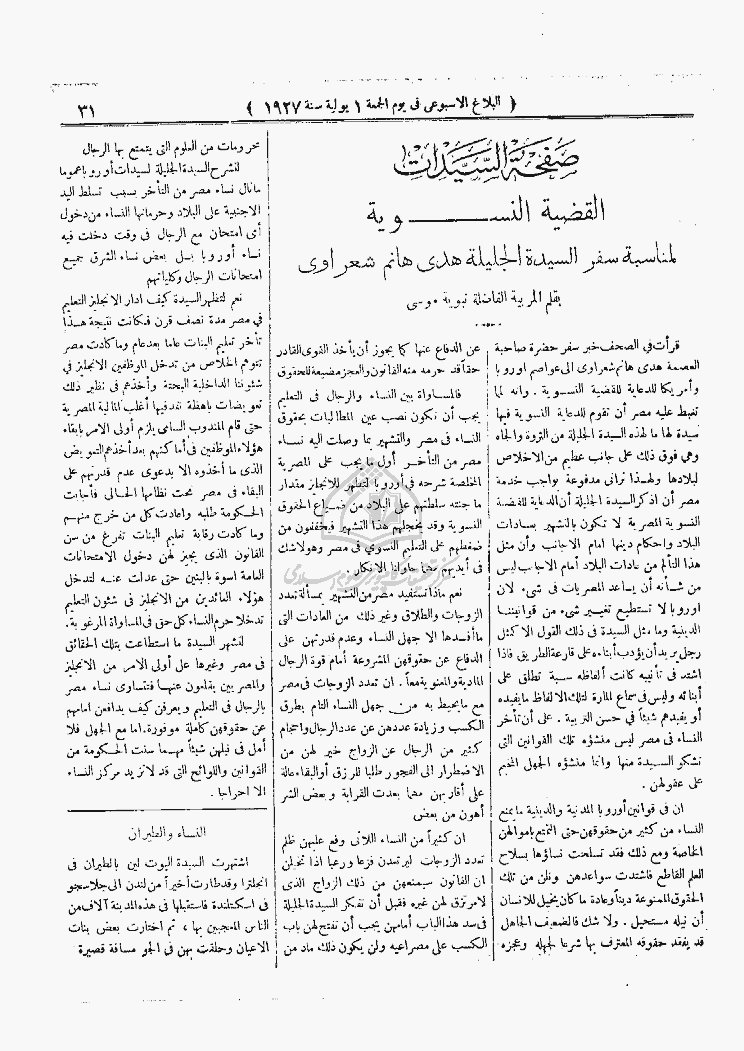 ﴿ البلاغ الاسبوعى فى يوم الجمعة ١ يولية سنة ١٩٢٧ ﴾
٣١
صفحة السيدات
القضية النسوية
لمناسبة سفر السيدة الجليلة هدى هانم شعراوى
بقلم المربية الفاضلة نبوية موسى
قرأت في الصحف خبر سفر حضرة صاحبة
العصمة هدى هانم شعراوى الى عواصم اوروبا
وأمريكا للدعاية للقضية النسوية . وانه لما
تغبط عليه مصر أن تقوم للدعاية النسوية فيها
سيدة لها ما لهذه السيدة الجليلة من الثروة والجاه
وهى فوق ذلك على جانب عظيم من الاخلاص
لبلادها ولهذا ترانى مدفوعة بواجب خدمة
مصر أن اذكر السيدة الجليلة أن الدعاية للقضية
النسوية المصرية لا تكون بالتشهير بسادات
البلاد واحكام دينها امام الاجانب وأن مثل
هذا التألم من عادات البلاد أمام الاجانب ليس
من شأنه أن يساعد المصريات فى شىء لان
اوروبا لا تستطيع تغيير شىء من قوانيننا
الدينية وما مثل السيدة فى ذلك القول الا كمثل
رجل يريد أن يؤدب أبناءه على قارعة الطريق فاذا
اشتد فى تأنيبه كانت ألفاظه سبة تطلق على
أبنائه وليس فى سماع المارة لتلك الالفاظ ما يفيده
أو يفيدهم شيئاً فى حسن التربية . على أن تأخر
النساء فى مصر ليس منشؤه تلك القوانين التى
تشكو السيدة منها وانما منشؤه الجهل المخيم
على عقولهن .
ان فى قوانين أوروبا المدنية والدينية ما يمنع
النساء من كثير من حقوقهن حتى التمتع باموالهن
الخاصة ومع ذلك فقد تسلحت نساؤها بسلاح
العلم القاطع فاشتدت سواعدهن ونلن من تلك
الحقوق الممنوعة ديناً وعادة ما كان يخيل للانسان
أن نيله مستحيل . ولا شك فالضعيف الجاهل
قد يفقد حقوقه المعترف بها شرعا لجهله وعجزه
عن الدفاع عنها كما يجوز أن يأخذ القوى القادر
حقا قد حرمه منه القانون والعجز مضيعة للحقوق
فالمساواة بين النساء والرجال فى التعليم
يجب أن تكون نصب عين المطالبات بحقوق
النساء فى مصر والتشهير بما وصلت اليه نساء
مصر من التأخر أول ما يجب على المصرية
المخلصة شرحه فى أوروبا لتظهر للانجليز مقدار
ما جنته سلطتهم على البلاد من ضياع الحقوق
النسوية وقد يخجلهم هذا التشهير فيخففون من
ضغطهم على التعليم النسوي فى مصر وهو لا شك
فى أيديهم مهما حاولنا الانكار .
نعم ماذا تستفيد مصر من التشهير بمسألة تعدد
الزوجات والطلاق وغير ذلك من العادات التى
ما أفسدها الا جهل النساء وعدم قدرتهن على
الدفاع عن حقوقهن المشروعة أمام قوة الرجال
المادية والمعنوية معاً . ان تعدد الزوجات فى مصر
مع ما يحيط به من جهل النساء التام بطرق
الكسب وزيادة عددهن عن عدد الرجال واحجام
كثير من الرجال عن الزواج خير لهن من
الاضطرار الى الفجور طلبا للرزق أو البقاء عالة
على أقاربهن مهما بعدت القرابة و بعض الشر
أهون من بعض
ان كثيراً من النساء اللاتى وقع عليهن ظلم
تعدد الزوجات ليرتعدن فزعا ورعبا اذا تخيلن
ان القانون سيمنعهن من ذلك الزواج الذى
لا مرتزق لهن غيره فقبل أن تفكر السيدة الجليلة
فى سد هذا الباب أمامهن يجب أن تفتح لهن باب
الكسب على مصراعيه ولن يكون ذلك ما دمن
محرومات من العلوم التى يتمتع بها الرجال
لتشرح السيدة الجليلة لسيدات أوروبا عموما
ما نال نساء مصر من التأخر بسبب تسلط اليد
الاجنبية على البلاد وحرمانها النساء من دخول
أى امتحان مع الرجال فى وقت دخلت فيه
نساء أوروبا بل بعض نساء الشرق جميع
امتحانات الرجال وكلياتهم
نعم لتظهر السيدة كيف ادار الانجليز التعليم
فى مصر مدة نصف قرن فكانت نتيجة هذا
تأخر تعليم البنات عاما بعد عام وما كادت مصر
تتوهم الخلاص من تدخل الموظفين الانجليز فى
شئوننا الداخلية البحتة وأخذهم فى نظير ذلك
تعويضات باهظة نفد فيها أغلب المالية المصرية
حتى قام المندوب السامى يلزم أولى الامر بابقاء
هؤلاء الموظفين فى أماكنهم بعد أخذهم التعويض
الذى ما أخذوه الا بدعوى عدم قدرتهم على
البقاء فى مصر تحت نظامها الحالى فأجابت
الحكومة طلبه واعادت كل من خرج منهم
وما كادت رقابة تعليم البنات تفرغ من سن
القانون الذى يجيز لهن دخول الامتحانات
العامة اسوة بالبنين حتى عدلت عنه لتدخل
هؤلاء العائدين من الانجليز فى شئون التعليم
تدخلا حرم النساء كل حق فى المساواة المرغوبة .
لتشهر السيدة ما استطاعت بتلك الحقائق
فى مصر وغيرها على أولى الامر من الانجليز
والمصريين يقلعون عنها فتتساوى نساء مصر
بالرجال فى التعليم و يعرفن كيف يدافعن امامهم
عن حقوقهن كاملة موفورة . اما مع الجهل فلا
أمل فى نيلهن شيئاً مهما سنت الحكومة من
القوانين واللوائح التى قد لا تزيد مركز النساء
الا احراجا .
النساء والطيران
اشتهرت السيدة اليوت لين بالطيران فى
انجلترا وقد طارت أخيراً من لندن الى جلاسجو
فى اسكتلندة فاستقبلها فى هذه المدينة آلاف من
الناس المعجبين بها ، ثم اختارت بعض بنات
الاعيان وحلقت بهن فى الجو مسافة قصيرة